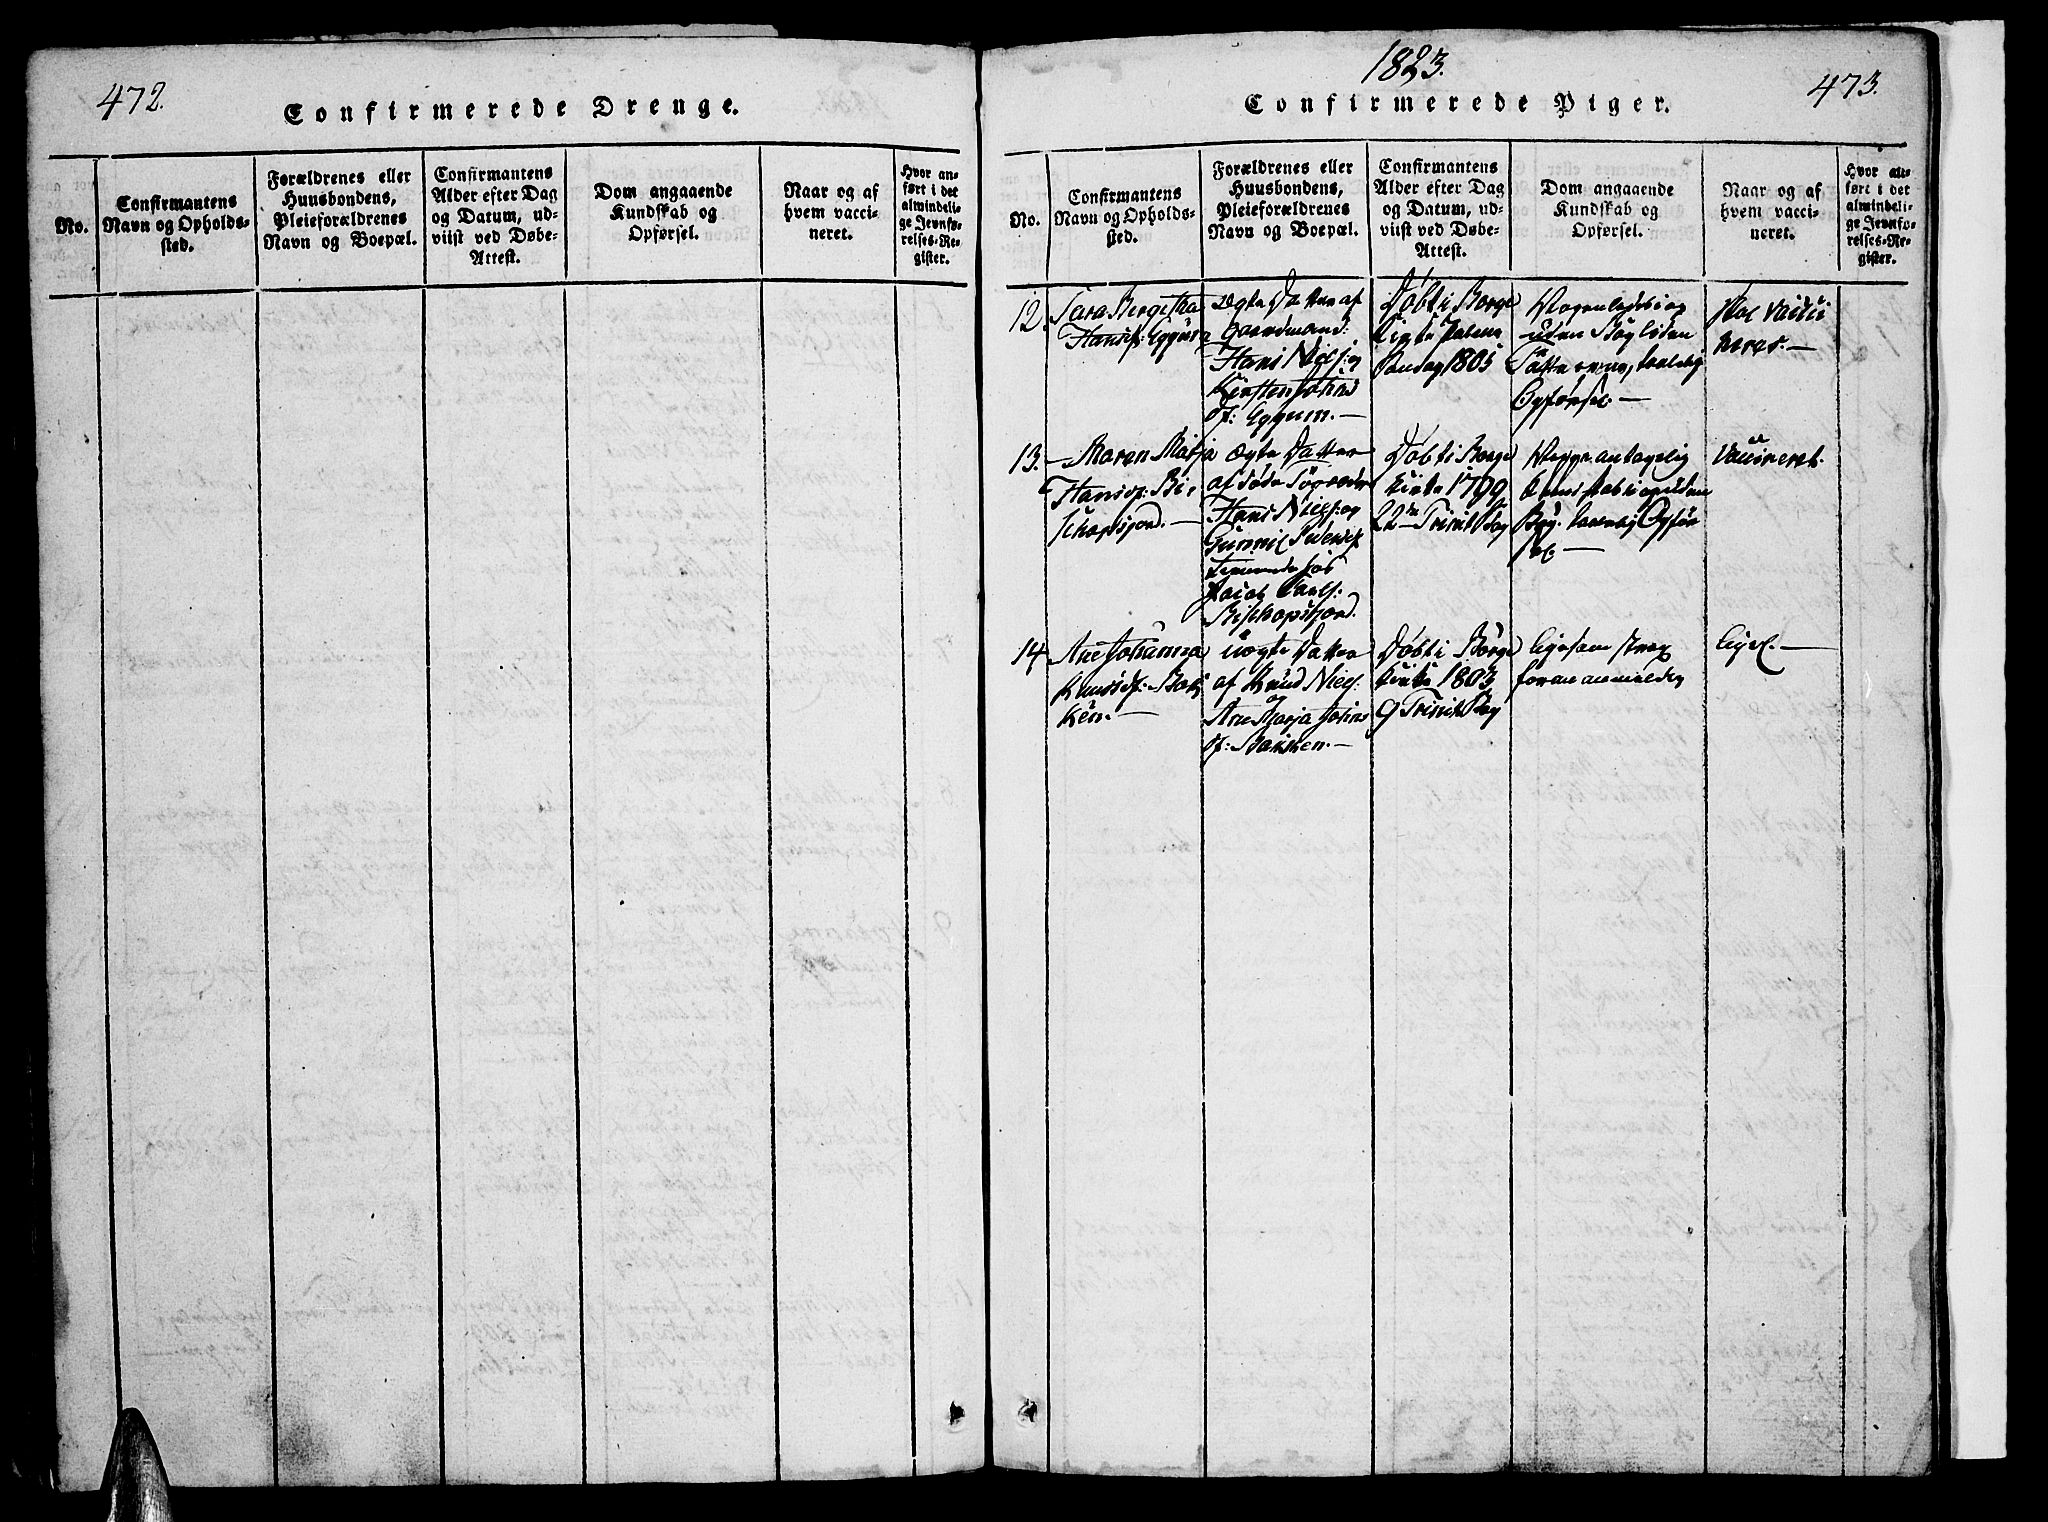 472.
Confirmerede Drenge.
No.
Confirmantens
Navn og Opholds-
sted.
Forældrenes eller
Huusbondens,
Pleieforældrenes
Navn og Boepæl.
Confirmantens
Alder efter Dag
og Datum, ud-
viist ved Døbe-
Attest.
Dom angaaende
Kundskab og
Opførsel.
Naar og af
hvem vacci-
neret.
Hvor an-
ført i det
almindeli-
ge Jevnfø-
relses-Re-
gister.
1823.
473.
Confirmerede Piger.
No.
Confirmantens
Navn og Opholds-
sted.
Forældrenes eller
Huusbondens,
Pleieforældrenes
Navn og Boepæl.
Confirmantens
Alder efter Dag
og Datum, ud-
viist ved Døbe-
Attest.
Dom angaaende
Kundskab og
Opførsel.
Naar og af
hvem vacci-
neret.
Hvor an-
ført i det
almindeli-
ge Jevnfø-
relses-Re-
gister.
12.
Sara Bergitha
Hansd:
Ægte Datter af
Gaardmand:
Hans Niels: og
Kirsten Johns
d: Eggum. —
Døbt i Borge
Kirke Palme
Søndag 1805
uden Bog liden
Opførsel —
vacci
neret. —
13.
— Maren Marja
Hansd: Bi
schopsjord. —
Ægte Datter
af døde
Hans Niels: og
Gunnil Peders
hos
Jacob
Bischopsjord.
Døbt i Borge
Kirke 1799
22 Trinit
antagelig
Bog. Opfør
sel —
Vaccineret.
14
Ane Johanna
Knudsd: Bak
ken. —
uægte Datter
af Knud Niels:
Ane Marja Johns
d: Bakken. —
Døbt i Borge
Kirke 1803
9 Trinit
ligesom strax
foran anmeldes
ligel. —